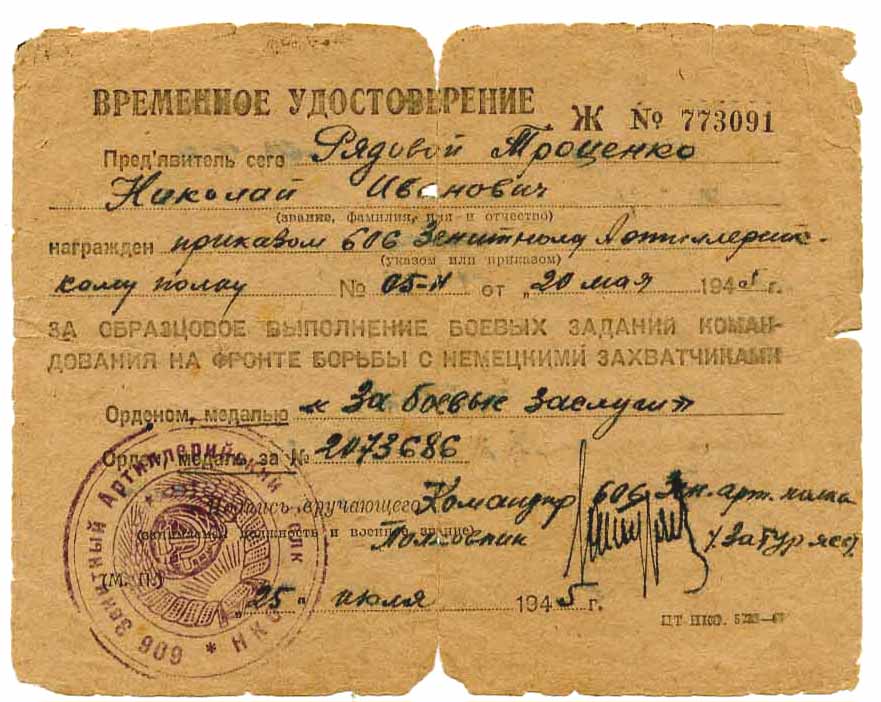 ВРЕМЕННОЕ УДОСТОВЕРЕНИЕ
Ж № 773091
Пред'явитель сего Рядовой Троценко
Николай Иванович
(звание, фамилия, имя и отчество)
награжден приказом 606 Зенитному Артиллерий-
(указом или приказом)
скому полку № 05-н от „20 мая 1945 г.
ЗА ОБРАЗЦОВОЕ ВЫПОЛНЕНИЕ БОЕВЫХ ЗАДАНИЙ КОМАН-
ДОВАНИЯ НА ФРОНТЕ БОРЬБЫ С НЕМЕЦКИМИ ЗАХВАТЧИКАМИ
Орденом, медалью „За боевые заслуги"
Орден, медаль за № 2073686
Подпись вручающего Командир 606 Зен. арт. полка
должность и военное звание)
Полковник
(М. П.)
„25" июля 1945 г.
606 Зенитный Артиллерийский полк * НКО *